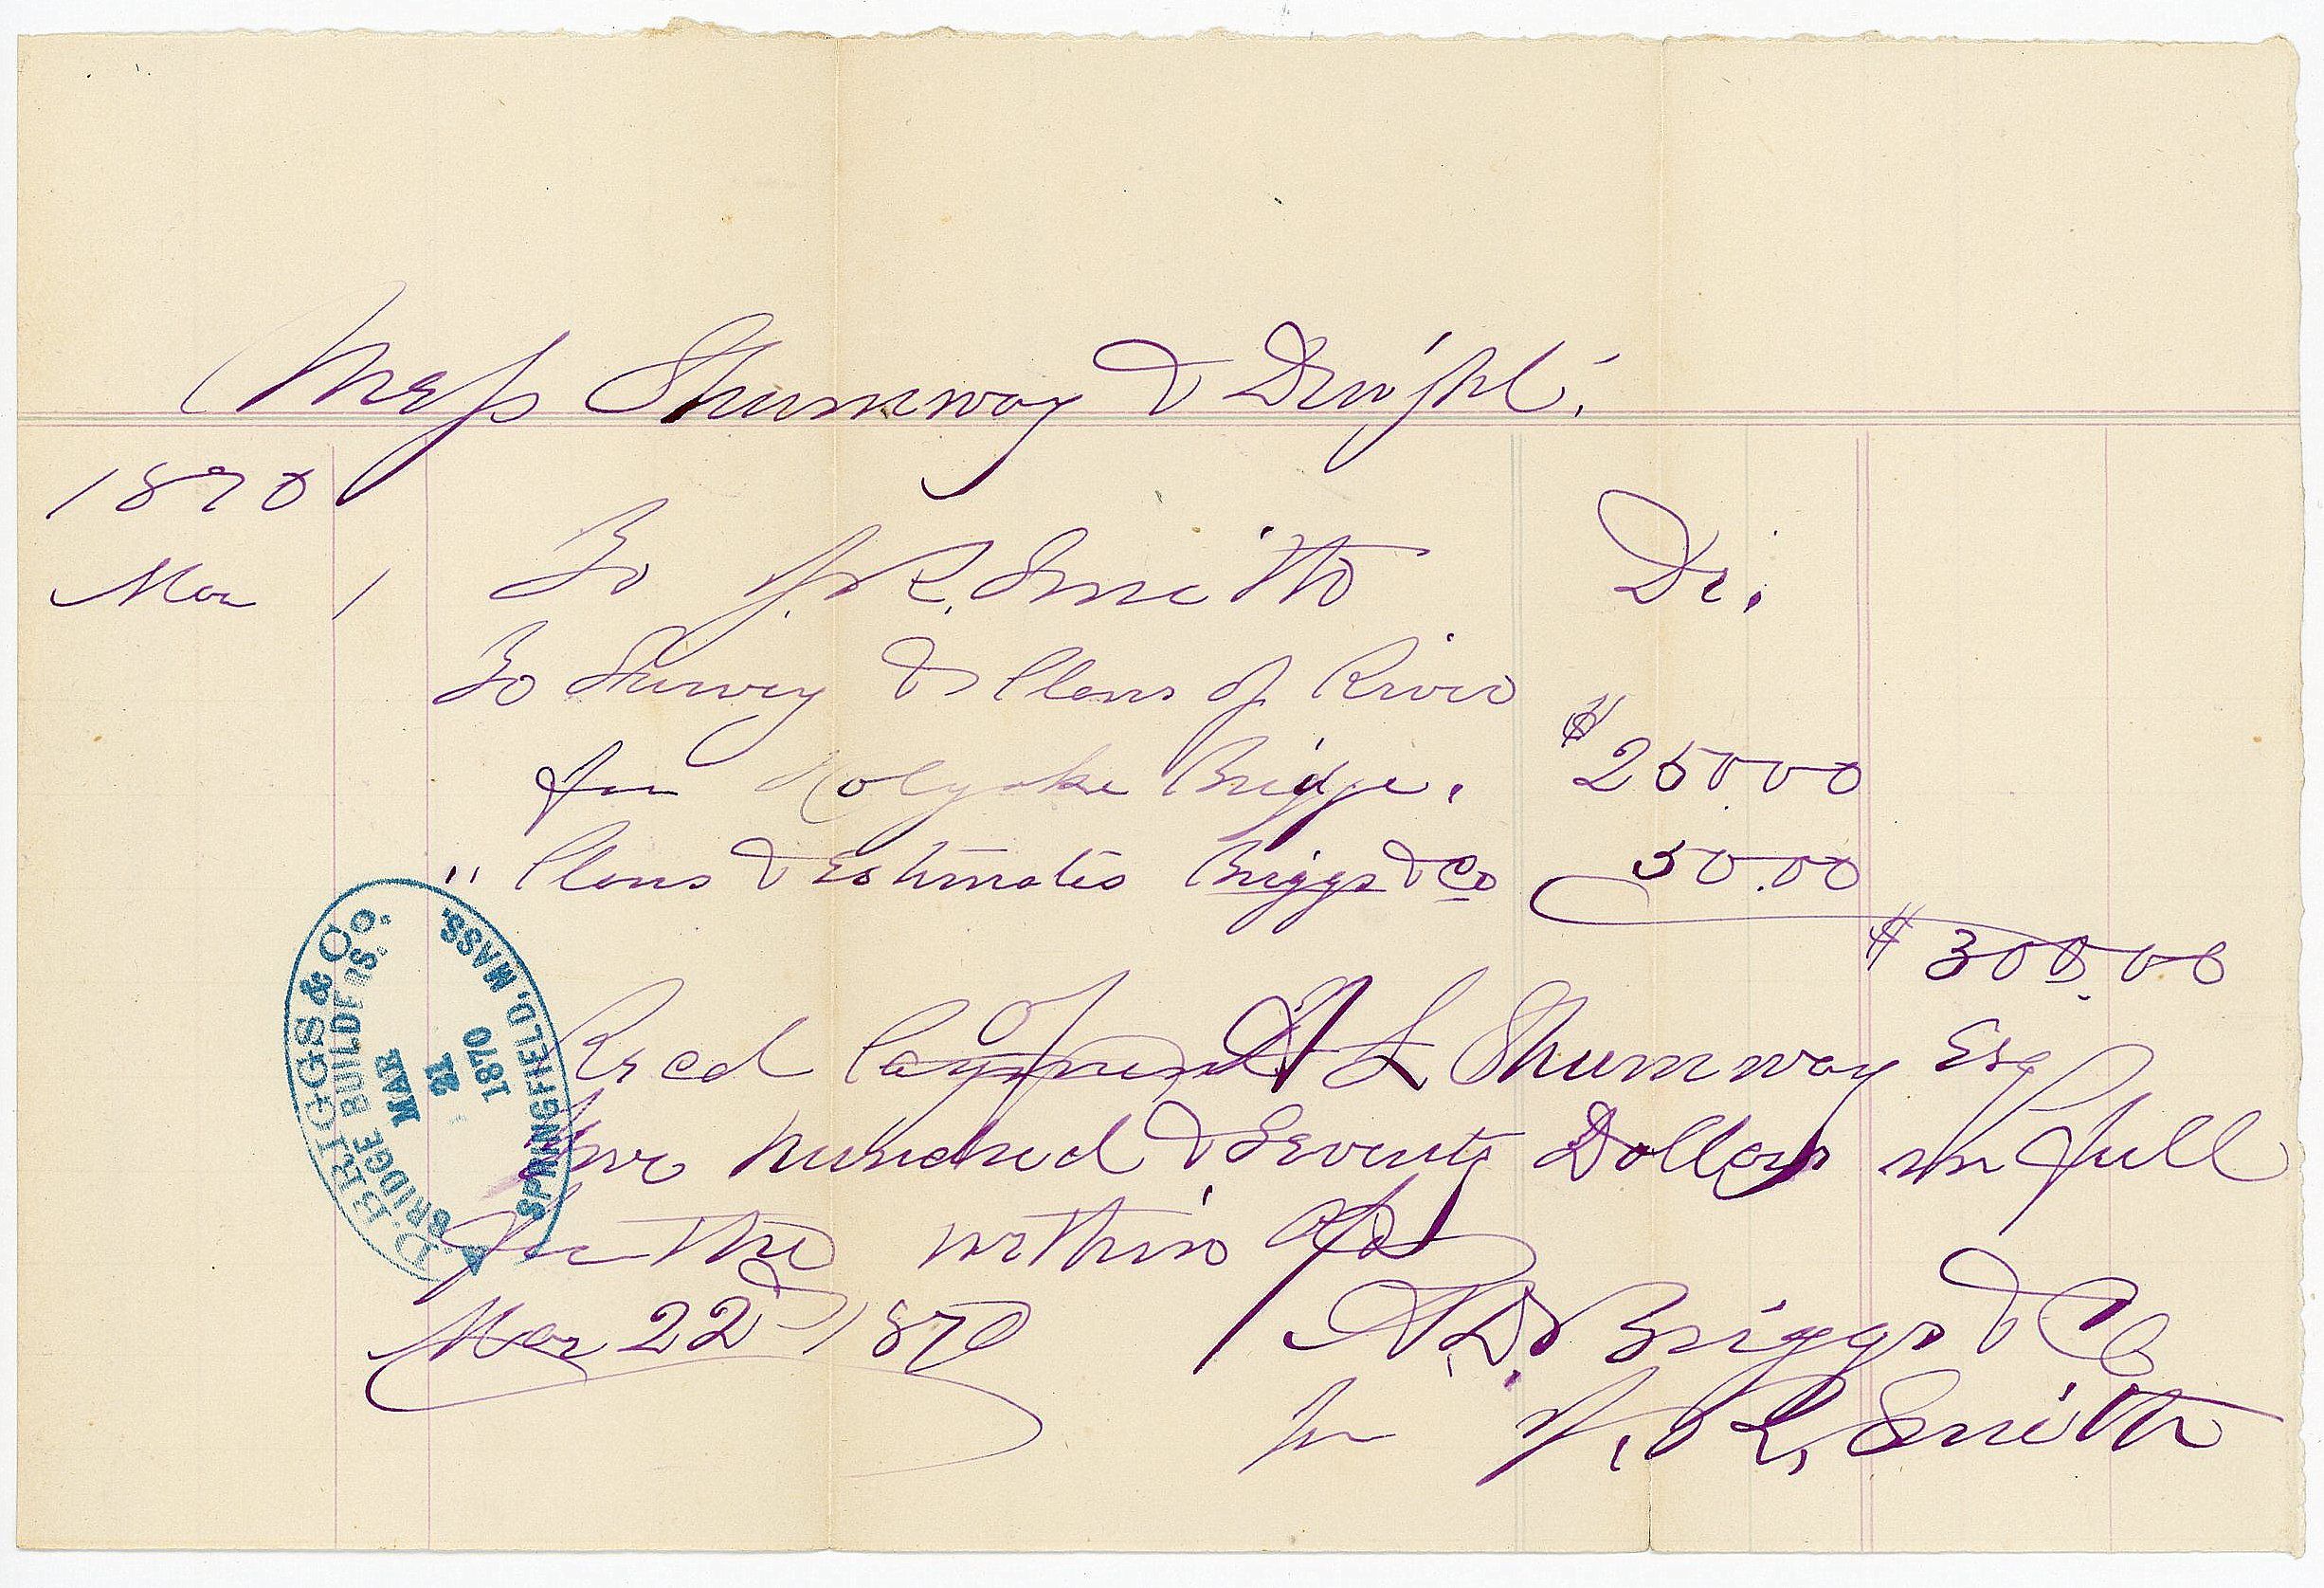 Mess Shumway & Dwight.
1870
Mar 1 To J. R. Smith Dr.
To Survey & Plans of River
for Holyoke Bridge. $250.00
" Plans & Estimates Briggs & Co 50.00
$300.00
Recd Payment of A L Shumway Esq
Two hundred & Seventy Dollars in full
for the within
Mar 22d 1870 A. D. Briggs & Co
for J. R. Smith
A. D. BRIGGS & CO.
BRIDGE BUILDERS.
MAR
21
1870
SPRINGFIELD, MASS.